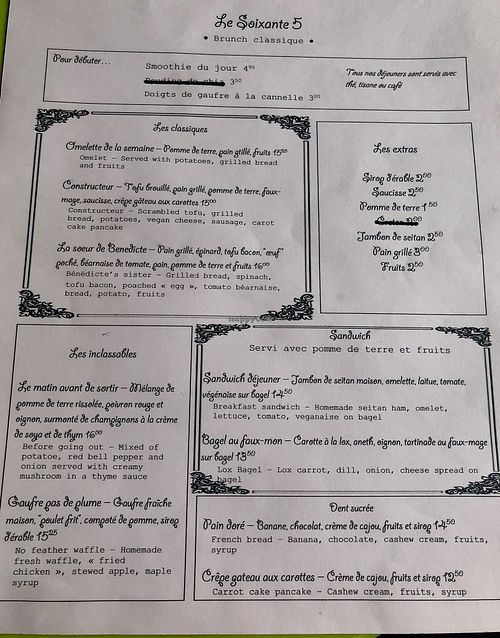 Le Soixante 5
• Brunch classique •
Pour débuter...
Smoothie du jour 4⁹⁵
Pouding de chia 3⁵⁰
Doigts de gaufre à la cannelle 3⁰⁰
Tous nos déjeuners sont servis avec
thé, tisane ou café
Les classiques
Omelette de la semaine – Pomme de terre, pain grillé, fruits
Omelet - Served with potatoes, grilled bread
and fruits
Constructeur – Tofu brouillé, pain grillé, pomme de terre, faux-
mage, saucisse, crêpe gâteau aux carottes 15⁰⁰
Constructor - Scrambled tofu, grilled
bread, potatoes, vegan cheese, sausage, carot
cake pancake
La soeur de Benedicte – Pain grillé, épinard, tofu bacon, "œuf"
poché, béarnaise de tomate, pain, pomme de terre et fruits 16⁰⁰
Bénédicte's sister - Grilled bread, spinach,
tofu bacon, poached « egg », tomato béarnaise,
bread, potato, fruits
Les extras
Sirop d'érable 2⁰⁰
Saucisse 2⁵⁰
Pomme de terre 1⁵⁰
Creton 2⁰⁰
Jambon de seitan 2⁵⁰
Pain grillé 3⁰⁰
Fruits 2⁵⁰
Les inclassables
Le matin avant de sortir – Mélange de
pomme de terre rissolée, poivron rouge et
oignon, surmonté de champignons à la crème
de soya et de thym 16⁰⁰
Before going out - Mixed of
potatoe, red bell pepper and
onion served with creamy
mushroom in a thyme sauce
Gaufre pas de plume – Gaufre fraîche
maison, "poulet frit", compoté de pomme, sirop
d'érable 15²⁵
No feather waffle - Homemade
fresh waffle, « fried
chicken », stewed apple, maple
syrup
Sandwich
Servi avec pomme de terre et fruits
Sandwich déjeuner – Jambon de seitan maison, omelette, laitue, tomate,
végénaise sur bagel 14⁵⁰
Breakfast sandwich - Homemade seitan ham, omelet,
lettuce, tomato, veganaise on bagel
Bagel au faux-mon – Carotte à la lox, aneth, oignon, tartinade au faux-mage
sur bagel 13⁵⁰
Lox Bagel - Lox carrot, dill, onion, cheese spread on
bagel
Dent sucrée
Pain doré – Banane, chocolat, crème de cajou, fruits et sirop 14⁵⁰
French bread - Banana, chocolate, cashew cream, fruits,
syrup
Crêpe gateau aux carottes – Crème de cajou, fruits et sirop 12⁵⁰
Carrot cake pancake - Cashew cream, fruits, syrup